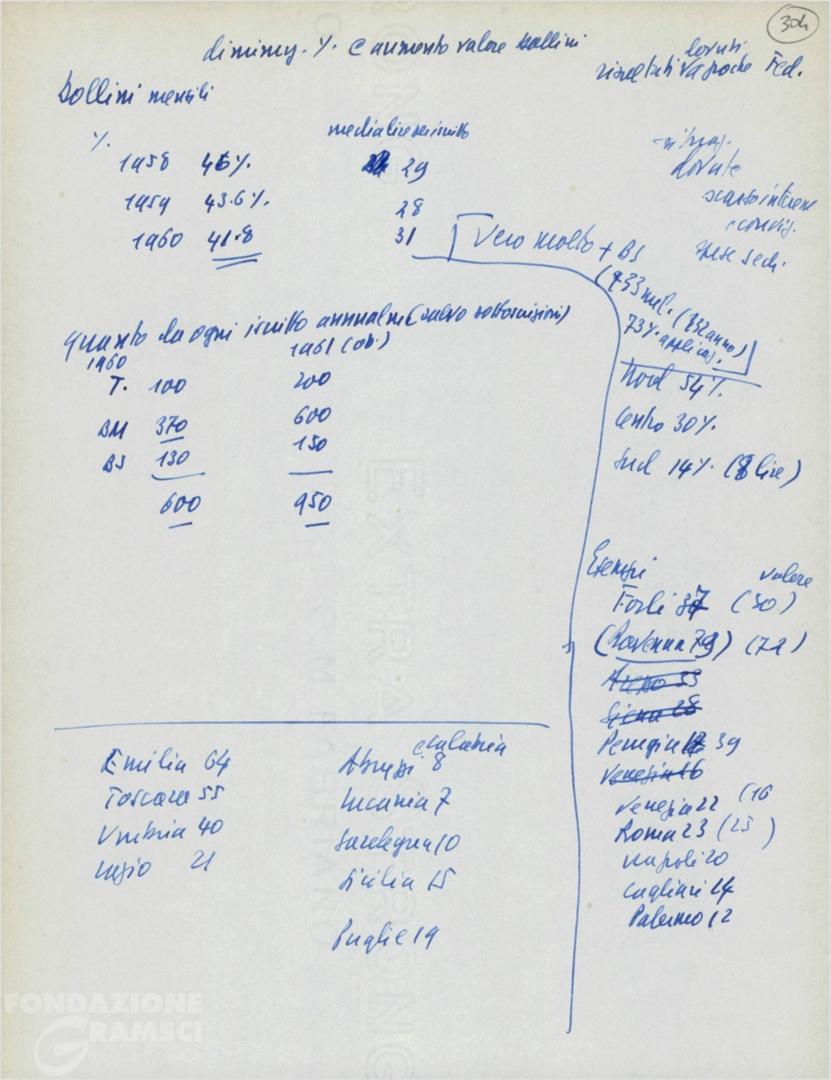 304
diminuz. % e aumento valore bollini
dovuti
risultati a poche Fed.
Bollini mensili
% media lire iscritto
1958 46% 29
1959 43.6% 28
1960 41.8 31
dovute
scarso interesse
spese sed.
Vero molto + BS
(433 mil. (332 anno)
73% applicaz.
Quanto da ogni iscritto annualm (salvo sottoscrizioni)
1960 1961 (ob.)
T. 100 200
BM 370 600
BS 130 150
600 950
Nord 54%
Centro 30%
Sud 14% (8 lire)
Esempi valore
Forlì 37 (30)
(Ravenna 79) (72)
Arezzo 33
Siena 28
Perugia 39
Venezia 16
Venezia 22 (16
Roma 23 (23)
Napoli 20
Cagliari 14
Palermo 12
Emilia 64
Toscana 55
Umbria 40
Lazio 21
e Calabria
Abruzzi 8
Lucania 7
Sardegna 10
Sicilia 15
Puglie 19
FONDAZIONE
GRAMSCI